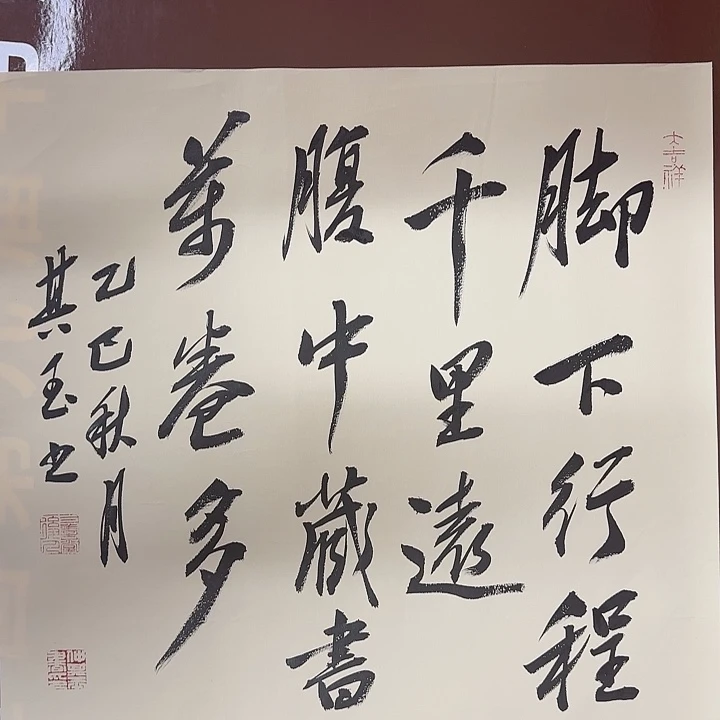 大吉祥
脚下行程
千里遠
腹中蔵書
萬卷多
乙巳秋月
其玉书